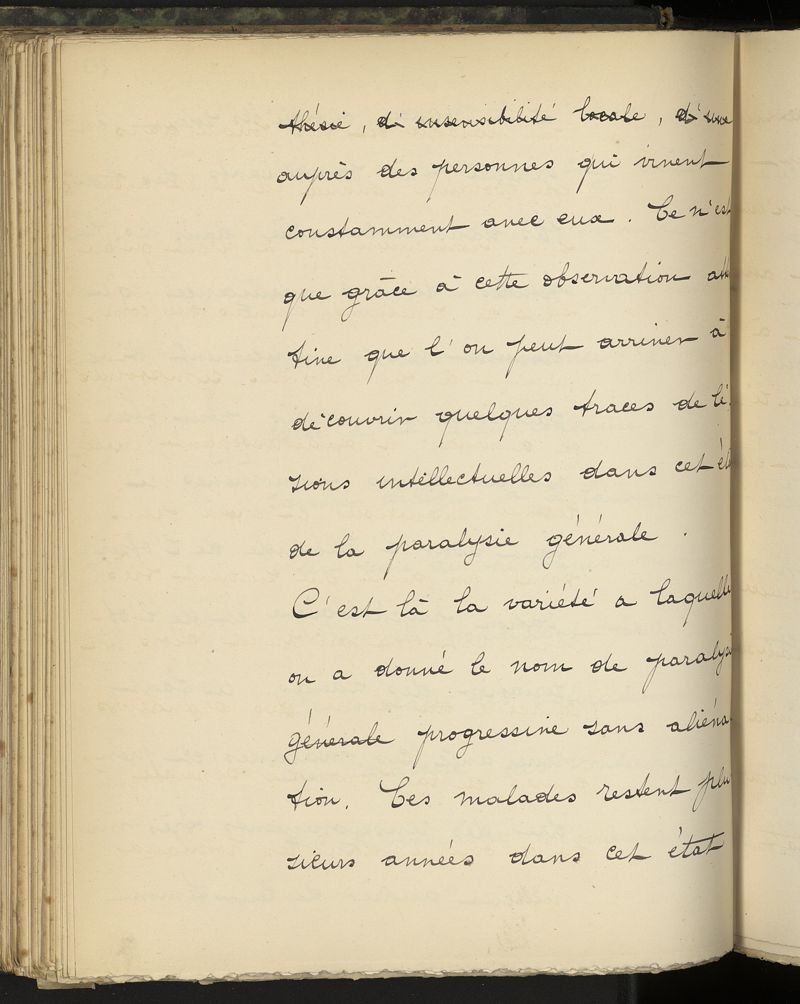 thésie, d'insensibilité locale, d'une
auprès des personnes qui vivent
constamment avec eux. Ce n'est
que grâce à cette observation att
tive que l'on peut arriver à
découvrir quelques traces de lé
sions intellectuelles dans cet ét
de la paralysie générale.
C'est là la variété a laquelle
on a donné le nom de paralysi
générale progressive sans aliéna
tion. Ces malades restent plu
sieurs années dans cet état